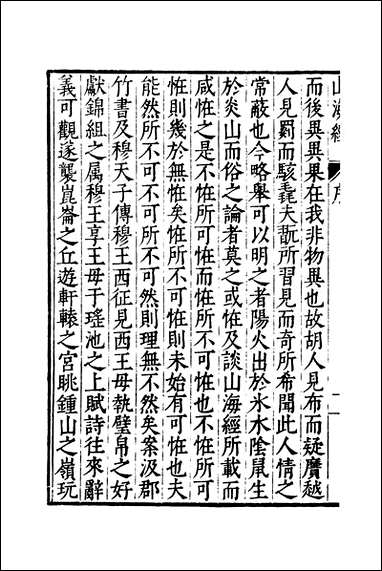 山海經 序
而後異異果在我非物異也故胡人見布而疑黂越
人見罽而駭毳夫翫所習見而奇所希聞此人情之
常蔽也今略舉可以明之者陽火出於氷水陰鼠生
於炎山而俗之論者莫之或恠及談山海經所載而
咸恠之是不恠所可恠而恠所不可恠也不恠所可
恠則幾於無恠矣恠所不可恠則未始有可恠也夫
能然所不可不可所不可然則理無不然矣案汲郡
竹書及穆天子傳穆王西征見西王母執璧帛之好
獻錦組之属穆王享王母于瑤池之上賦詩往來辭
義可觀遂襲崑崙之丘遊軒轅之宮眺鍾山之嶺玩